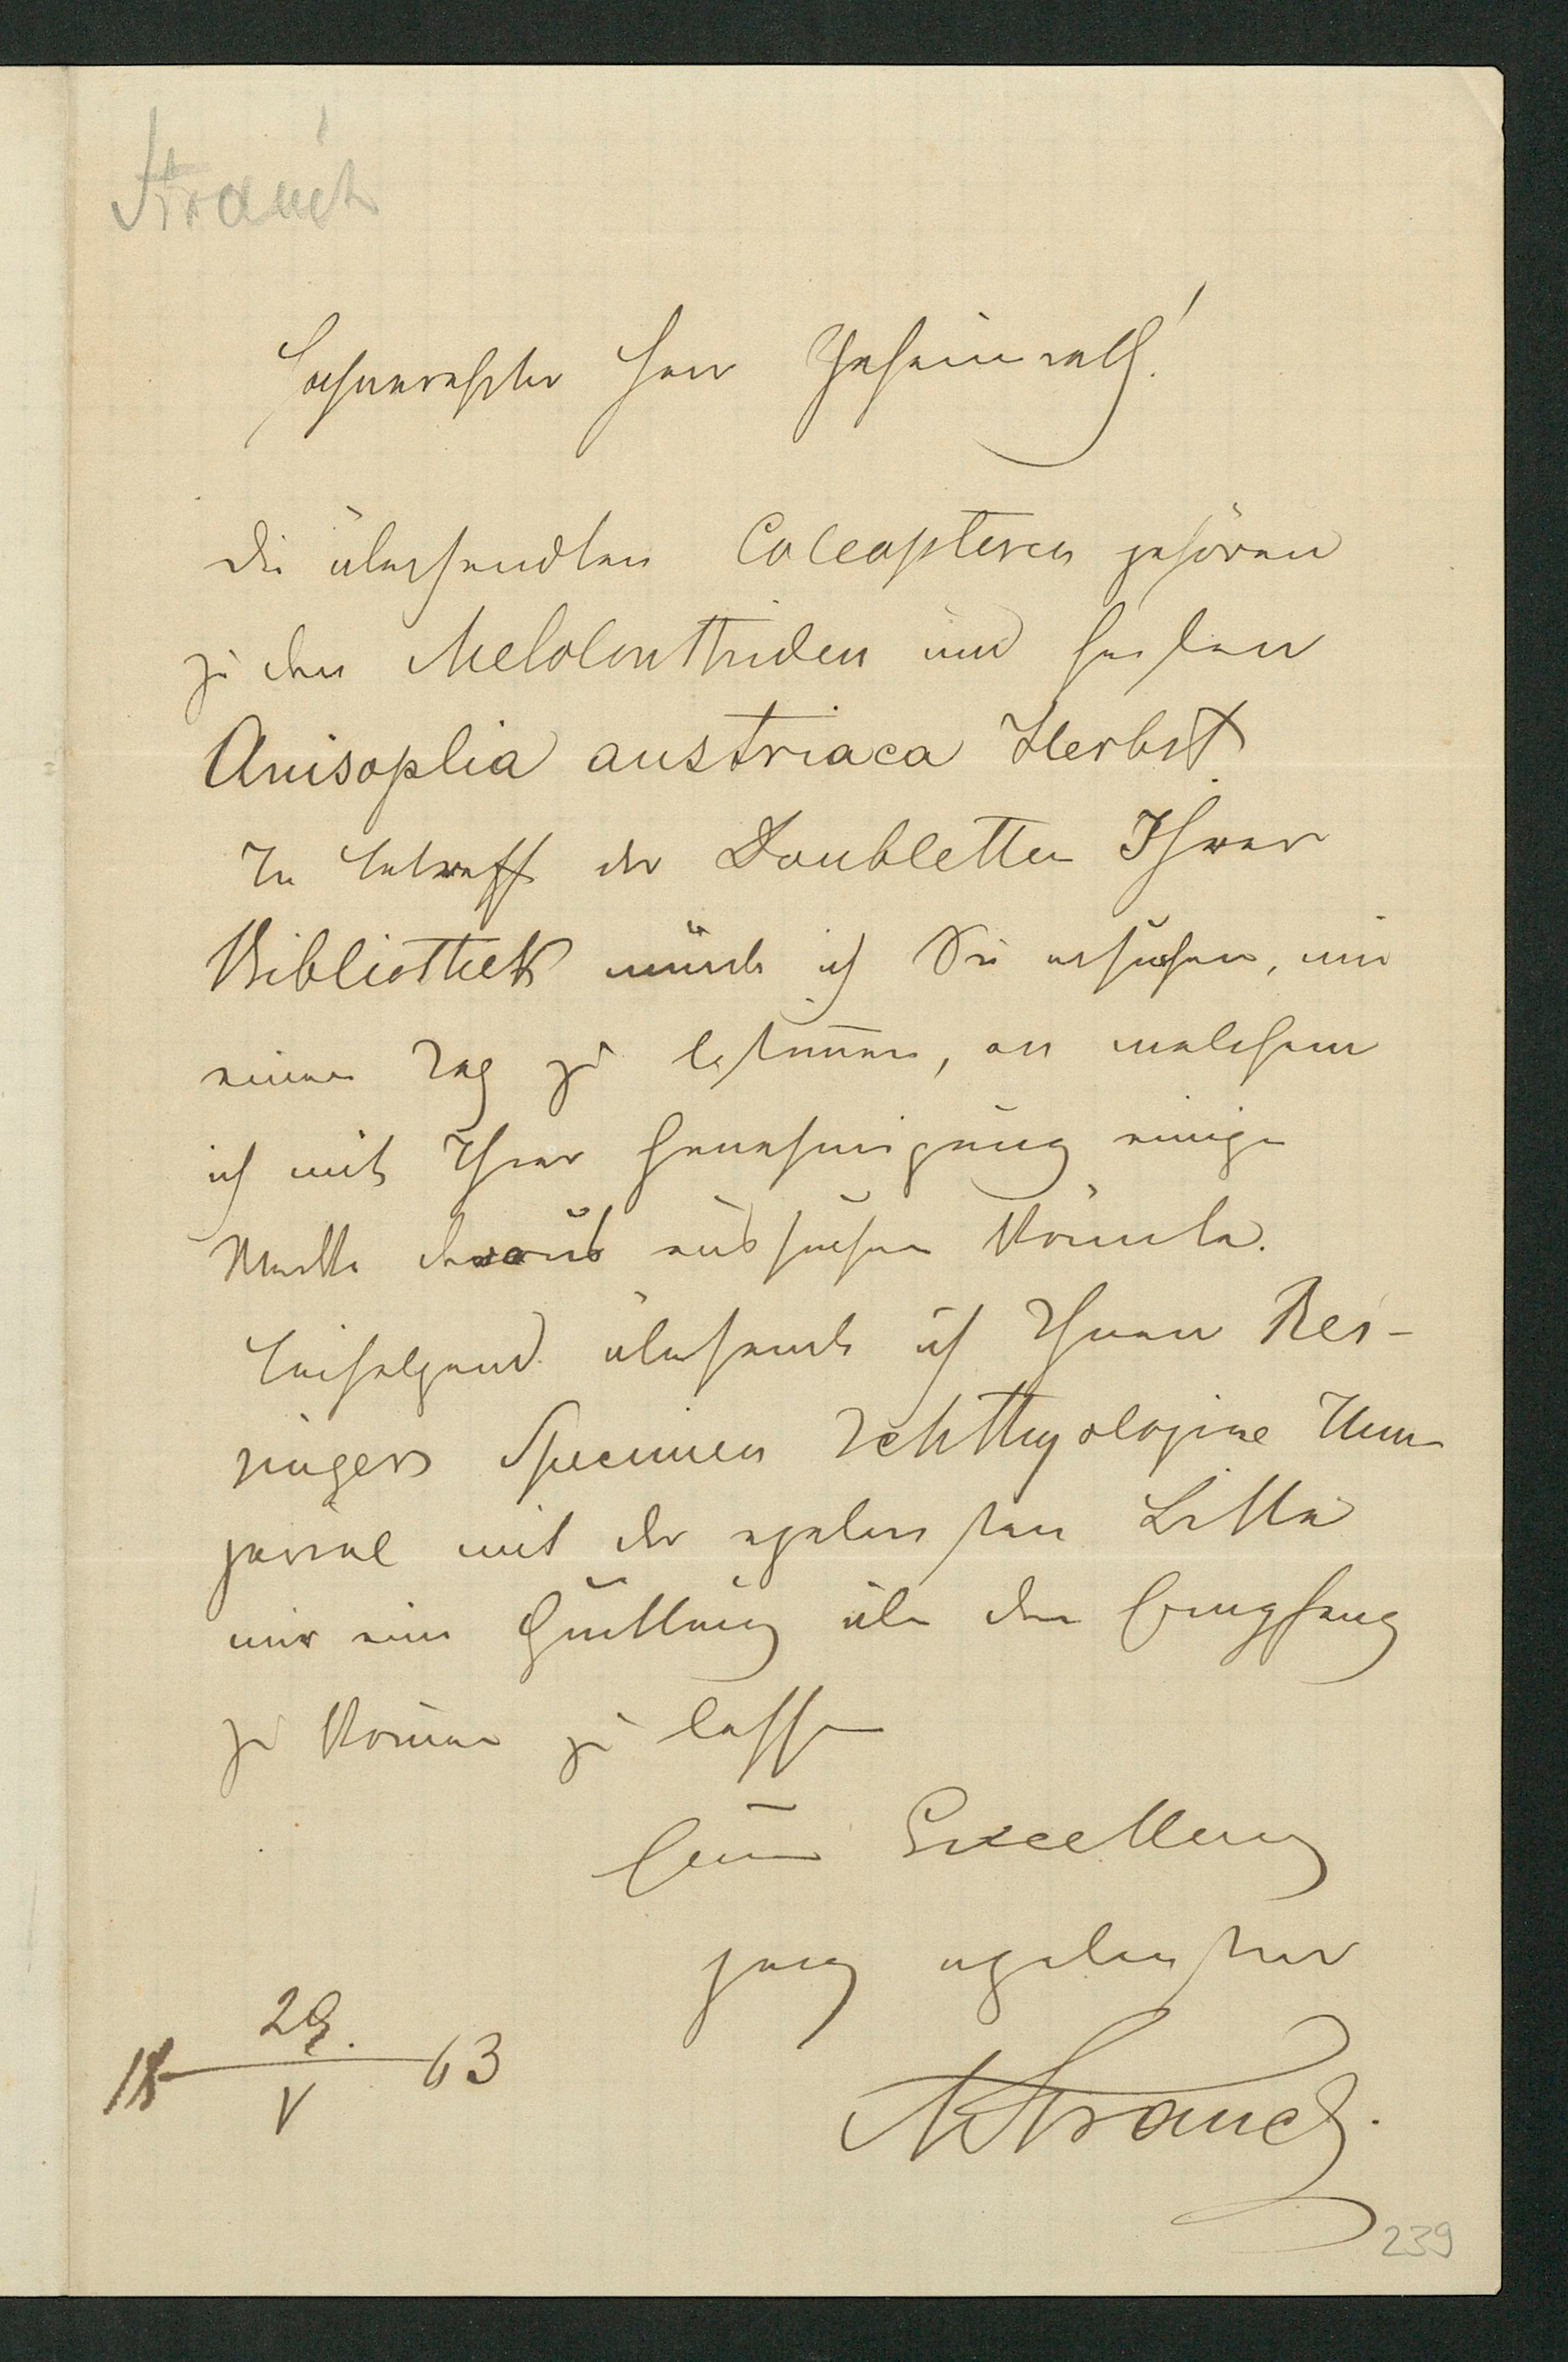 Strauch
Hochverehrter Herr Geheimrath!
Die übersendten Coleopteren gehören
zu den Melolonthiden und heißen
Anisoplia austriaca Herbst
In betreff der Doubletten Ihrer
Bibliothek würde ich Sie ersuchen, mir
einen Tag zu bestimmen, an welchem
ich mit Ihrer Genehmigung einige
Werke daraus aussuchen könnte.
Beifolgend übersende ich Ihnen Rei-
singers Specimen Ichthyologiae Hun
gariae mit der ergebensten Bitte
mir eine Quittung über den Empfang
zu kommen zu lassen
Eurer Excellenz
ganz ergebenster
AStrauch.
18 29. 63
V
239